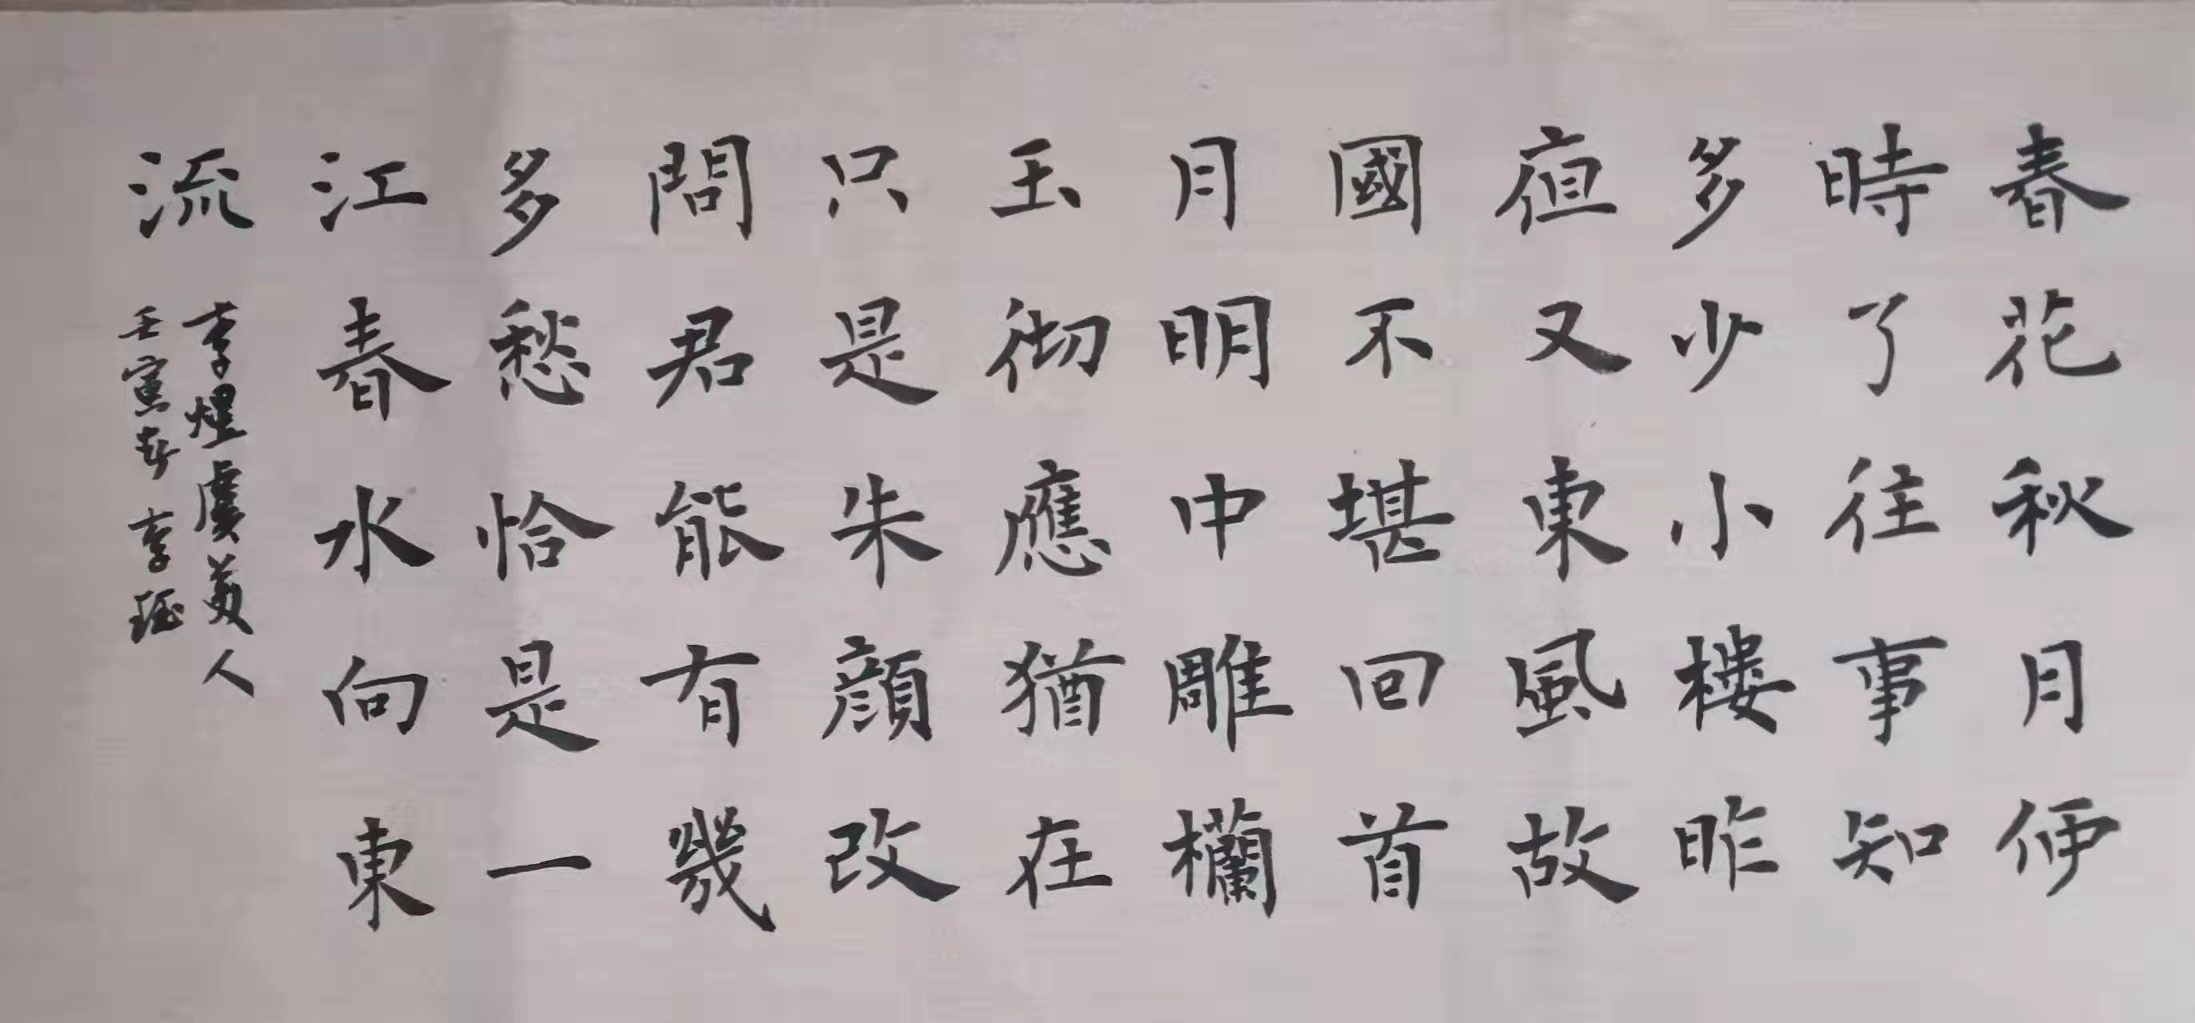 春花秋月何
時了往事知
多少小樓昨
夜又東風故
國不堪回首
月明中雕欄
玉彻應猶在
只是朱顔改
問君能有幾
多愁恰是一
江春水向東
流
李煜虞美人
壬寅春李